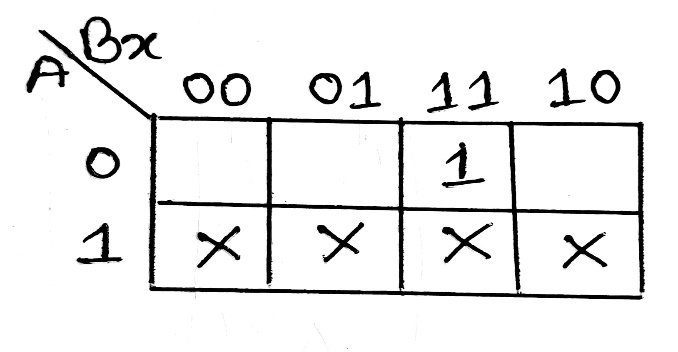 Bx
A
00 01 11 10
0 1
1 X X X X